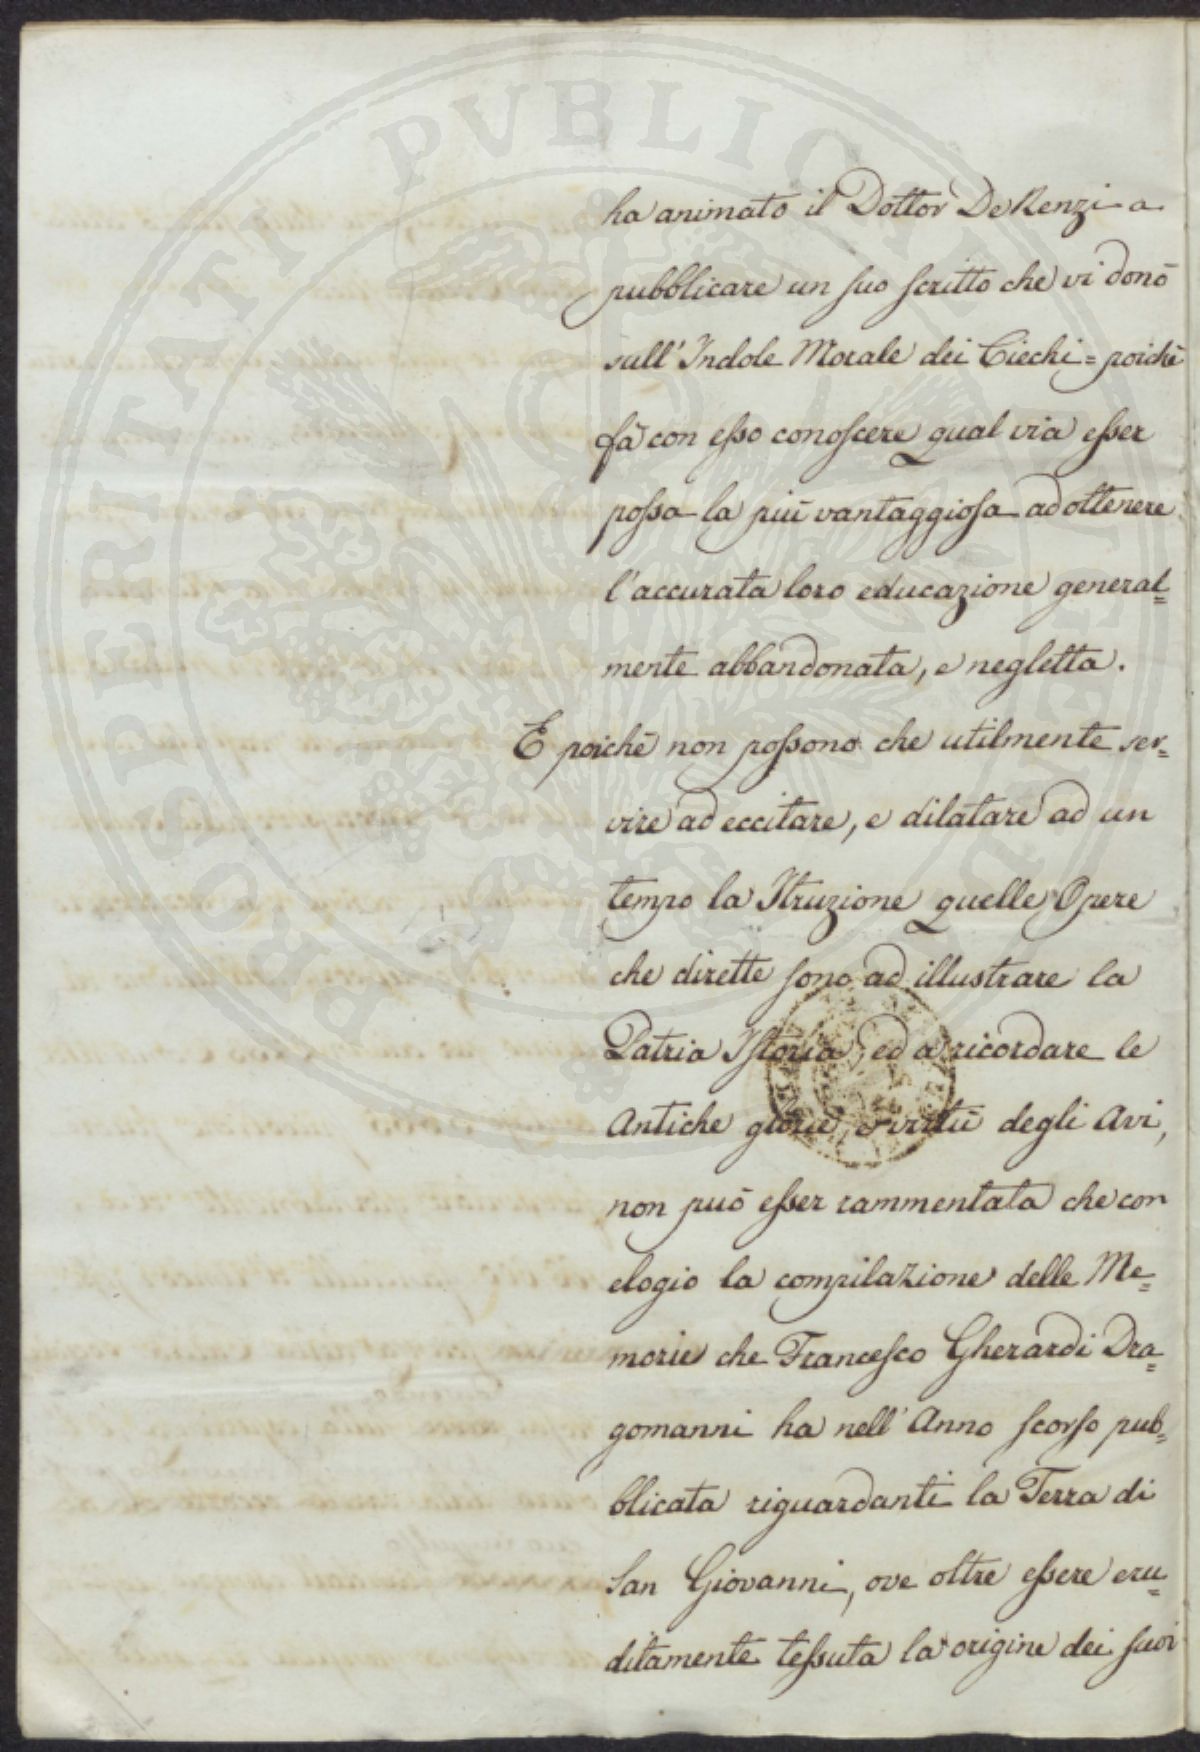 ha animato il Dottor De Renzi a
pubblicare un suo scritto che vi donò
sull'Indole Morale dei Ciechi = poichè
fà con esso conoscere qual via esser
possa la più vantaggiosa ad ottenere
l'accurata loro educazione general=
mente abbandonata, e negletta.
E poichè non possono che utilmente ser=
vire ad eccitare, e dilatare ad un
tempo la Istruzione quelle Opere
che dirette sono ad illustrare la
Patria Istoria, ed a ricordare le
Antiche glorie, e virtù degli Avi,
non può esser rammentata che con
elogio la compilazione delle Me=
morie che Francesco Gherardi Dra=
gomanni ha nell'Anno scorso pub=
blicata riguardanti la Terra di
San Giovanni, ove oltre essere eru=
ditamente tessuta la origine dei suoi
PROSPERITATI PVBLICAE AVGENDAE